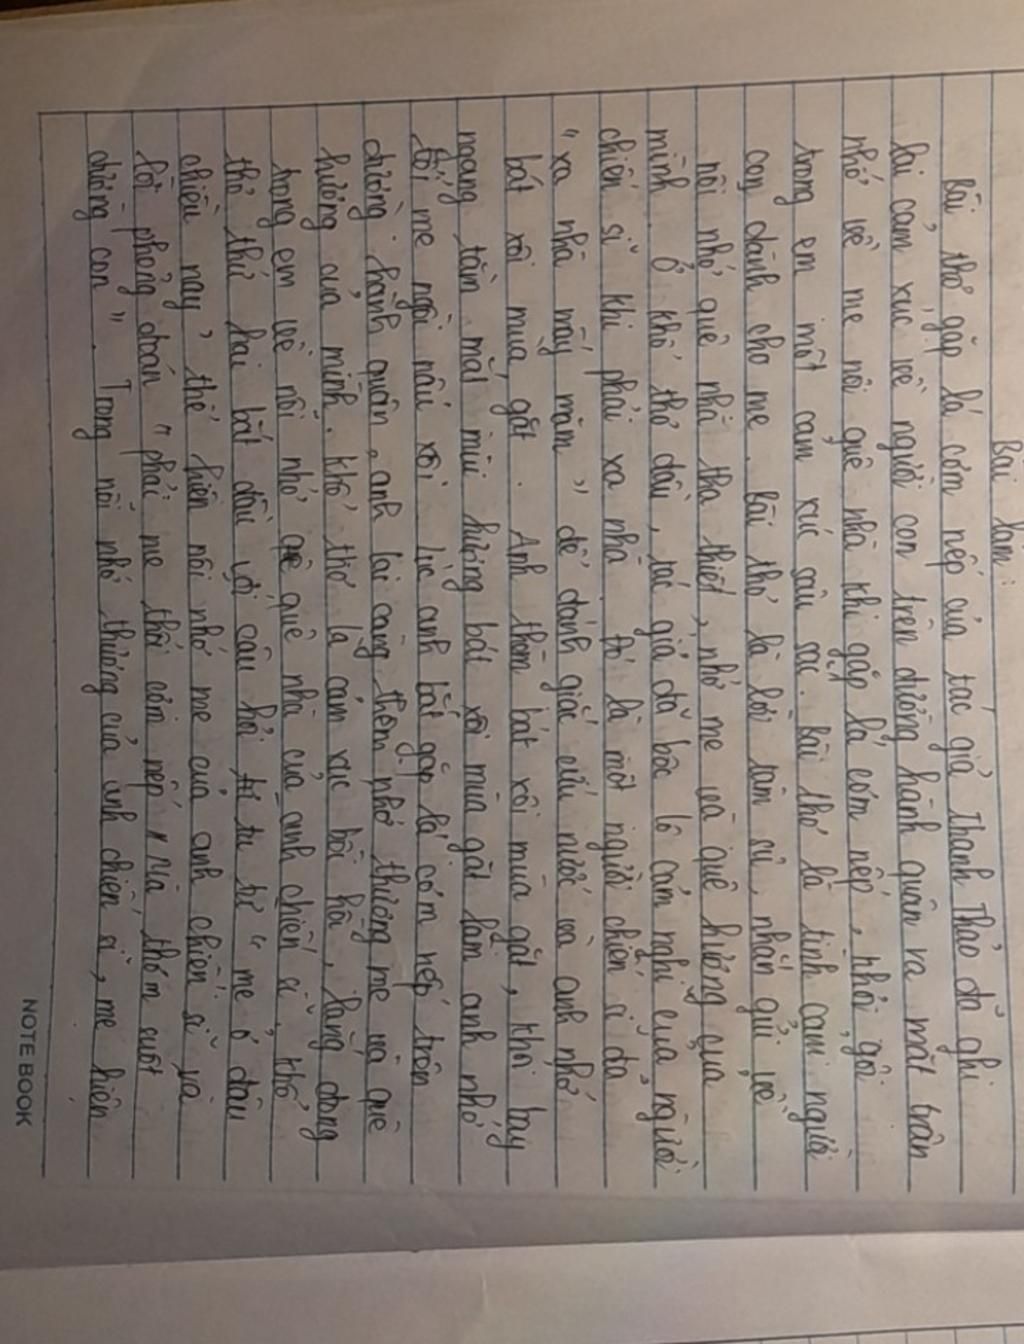 Bài làm:
Bài thơ gặp lá cơm nếp của tác giả Thanh Thảo đã ghi
lại cảm xúc về người con trên đường hành quân ra mặt trận
nhớ về mẹ nơi quê nhà khi gặp lá cơm nếp, khơi gợi
trong em một cảm xúc sâu sắc. Bài thơ là tình cảm người
con dành cho mẹ. Bài thơ là lời tâm sự, nhắn gửi về
nỗi nhớ quê nhà tha thiết, nhớ mẹ và quê hương của
mình. Ở khổ thơ đầu, tác giả đã bộc lộ cảm nghĩ của người
chiến sĩ khi phải xa nhà. Đó là một người chiến sĩ đã
"xa nhà mấy năm" để đánh giặc cứu nước và anh nhớ
bát xôi mùa gặt. Anh thèm bát xôi mùa gặt, khói bay
ngang tầm mắt mùi hương bát xôi mùa gặt làm anh nhớ
tới mẹ ngồi nấu xôi lúc anh bắt gặp lá cơm nếp trên
đường hành quân, anh lại càng thêm nhớ thương mẹ và quê
hương của mình. Khổ thơ là cảm xúc bồi hồi, lắng đọng
trong em về nỗi nhớ quê nhà của anh chiến sĩ. Khổ
thơ thứ hai bắt đầu với câu hỏi tu từ "mẹ ở đâu
chiều nay" thể hiện nỗi nhớ mẹ của anh chiến sĩ và
lời phỏng đoán "phải mẹ thổi cơm nếp/ Mà thơm suốt
đường con". Trong nỗi nhớ thương của anh chiến sĩ, mẹ hiện
NOTEBOOK